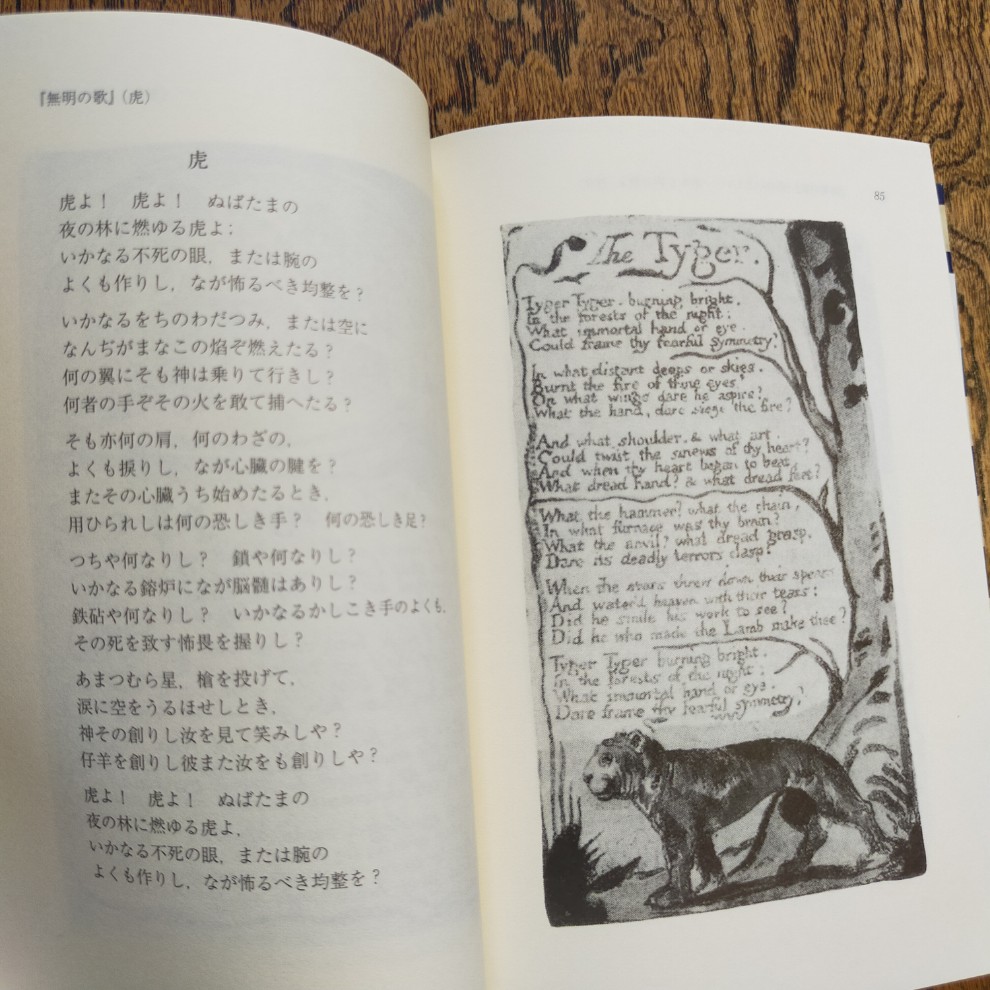 『無明の歌』（虎）
虎
虎よ！　虎よ！　ぬばたまの
夜の林に燃ゆる虎よ；
いかなる不死の眼，または腕の
よくも作りし，なが怖るべき均整を？
いかなるをちのわだつみ，または空に
なんぢがまなこの焰ぞ燃えたる？
何の翼にそも神は乗りて行きし？
何者の手ぞその火を敢て捕へたる？
そも亦何の肩，何のわざの，
よくも捩りし，なが心臓の腱を？
またその心臓うち始めたるとき，
用ひられしは何の恐しき手？　何の恐しき足？
つちや何なりし？　鎖や何なりし？
いかなる鎔炉になが脳髄はありし？
鉄砧や何なりし？　いかなるかしこき手のよくも，
その死を致す怖畏を握りし？
あまつむら星，槍を投げて，
涙に空をうるほせしとき，
神その創りし汝を見て笑みしや？
仔羊を創りし彼また汝をも創りしや？
虎よ！　虎よ！　ぬばたまの
夜の林に燃ゆる虎よ，
いかなる不死の眼，または腕の
よくも作りし，なが怖るべき均整を？
85
The Tyger.
Tyger Tyger. burning bright,
In the forests of the night;
What immortal hand or eye.
Could frame thy fearful symmetry?
In what distant deeps or skies.
Burnt the fire of thine eyes?
On what wings dare he aspire?
What the hand, dare sieze the fire?
And what shoulder, & what art,
Could twist the sinews of thy heart?
And when thy heart began to beat,
What dread hand? & what dread feet?
What the hammer? what the chain,
In what furnace was thy brain?
What the anvil? what dread grasp.
Dare its deadly terrors clasp?
When the stars threw down their spears
And water'd heaven with their tears:
Did he smile his work to see?
Did he who made the Lamb make thee?
Tyger Tyger burning bright,
In the forests of the night:
What immortal hand or eye,
Dare frame thy fearful symmetry?